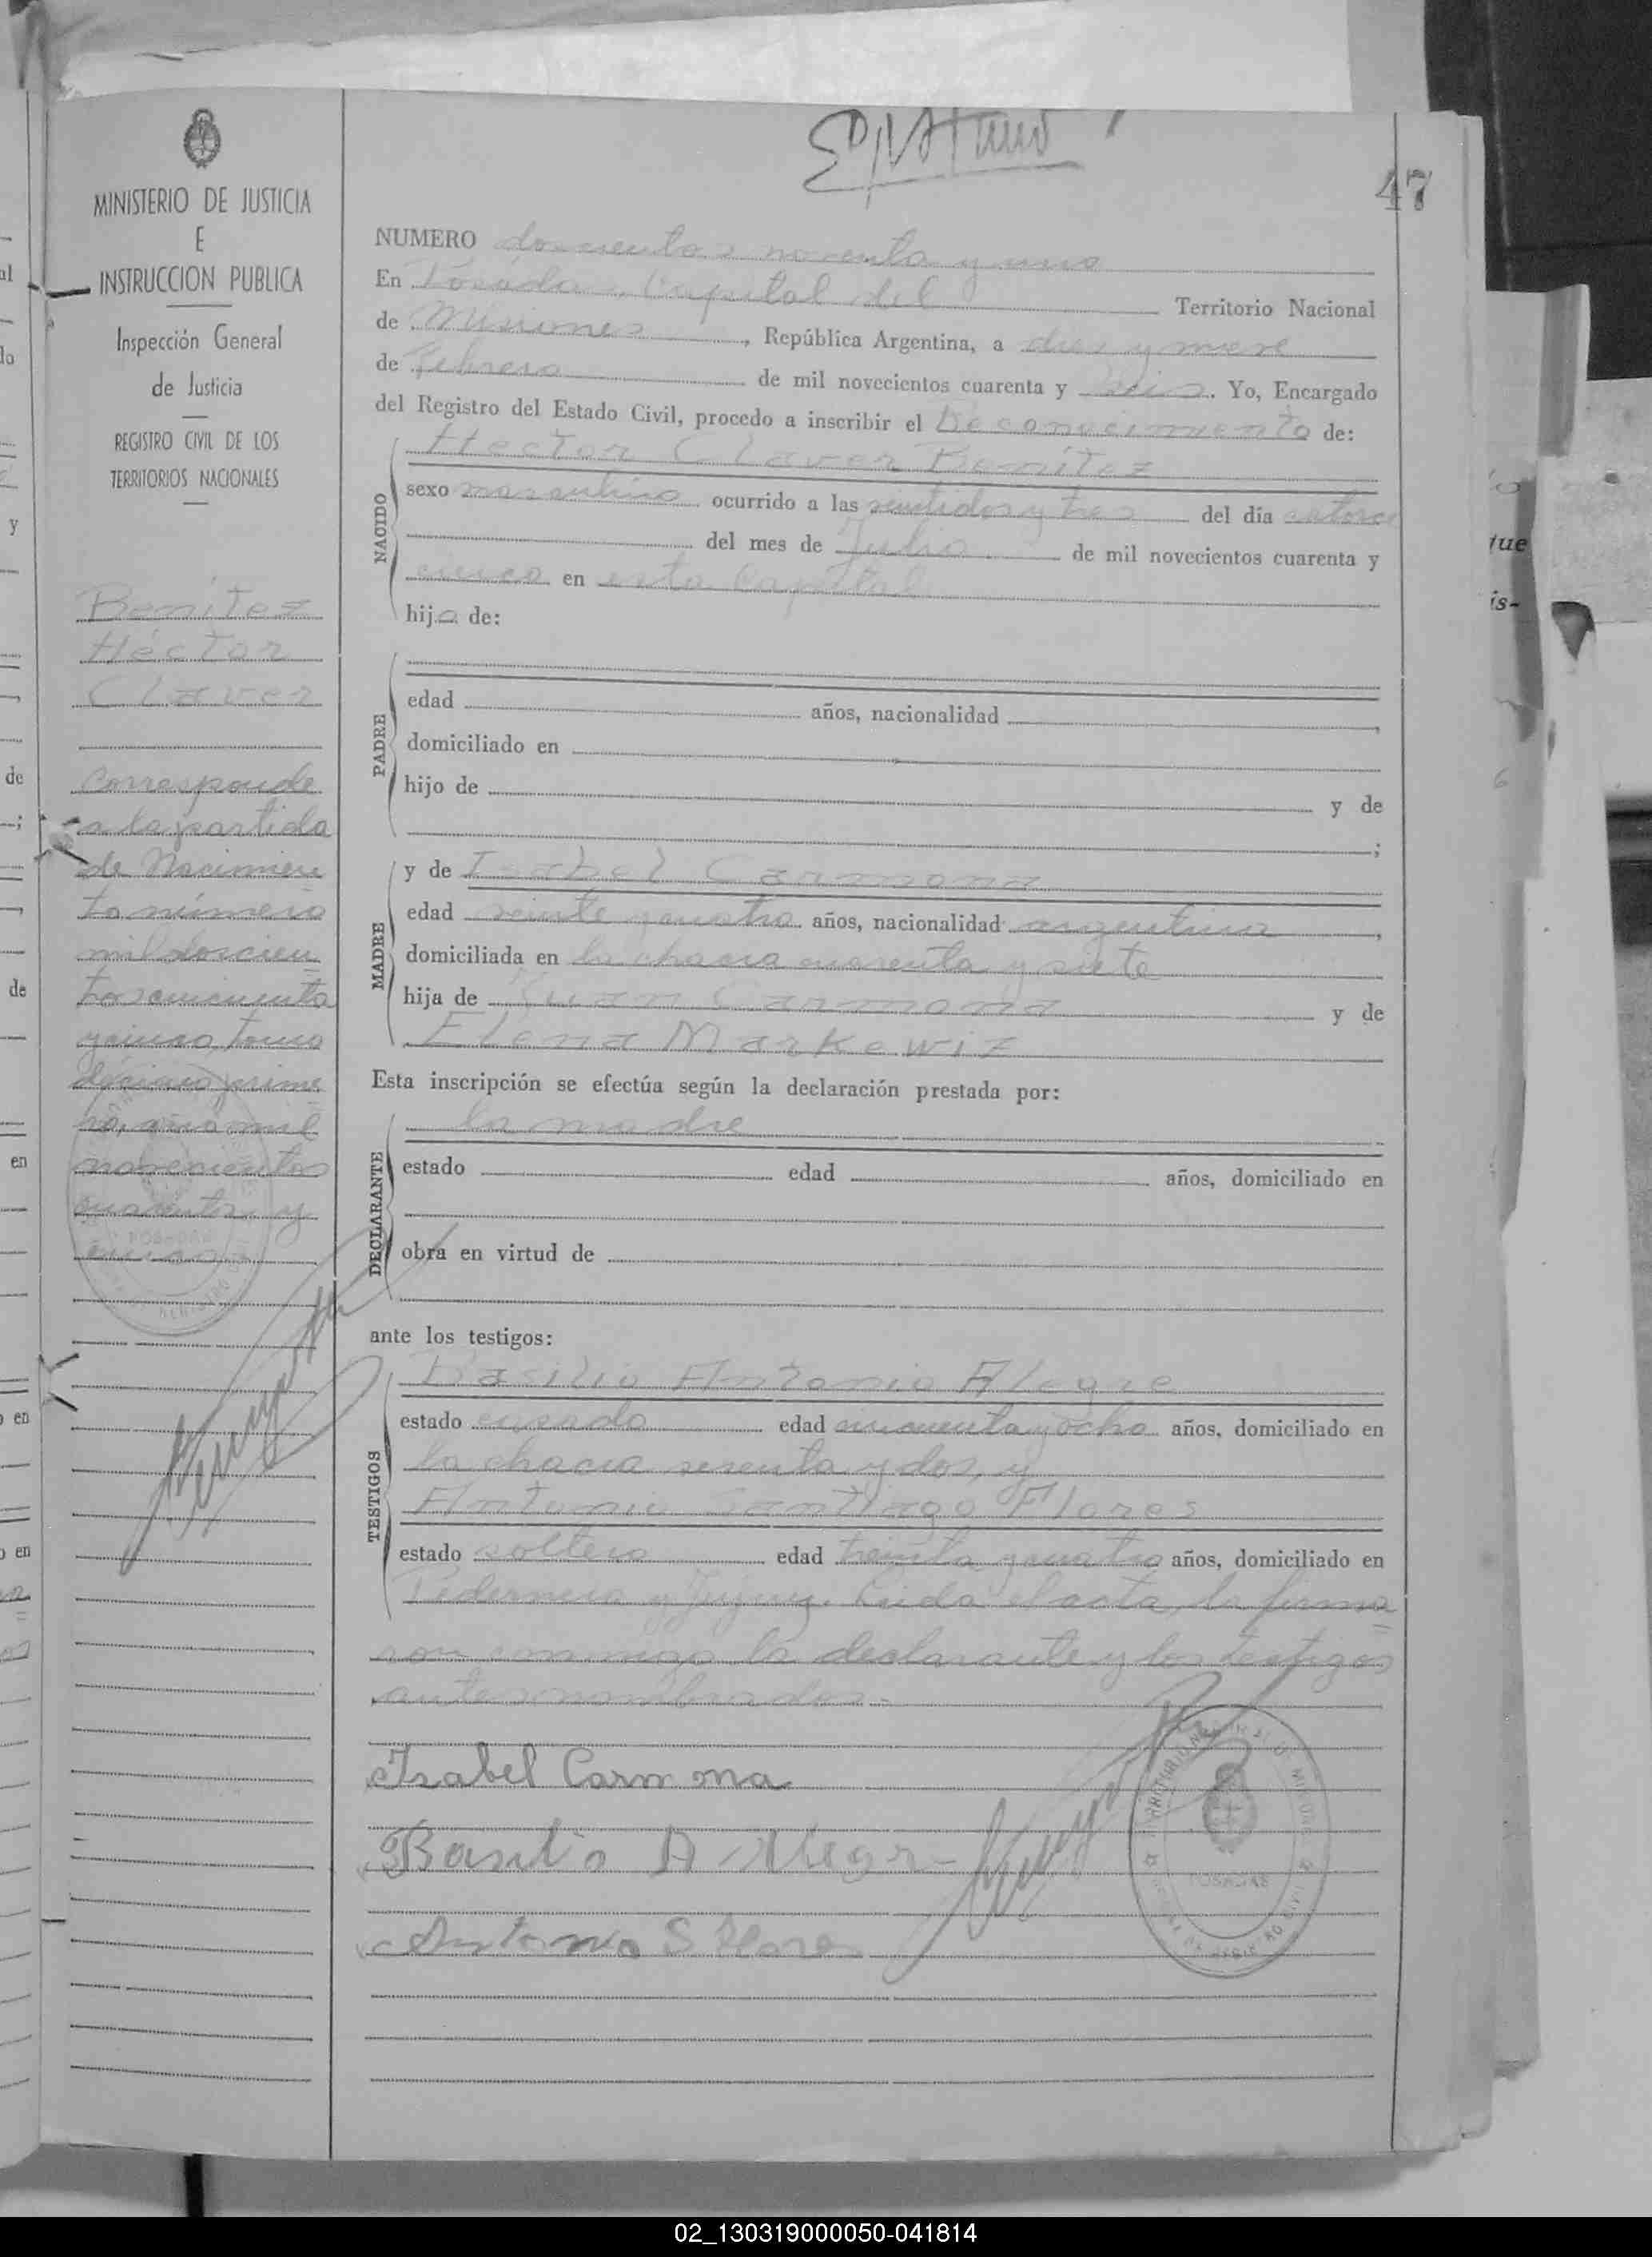 47
MINISTERIO DE JUSTICIA
E
INSTRUCCION PUBLICA
Inspección General
de Justicia
REGISTRO CIVIL DE LOS
TERRITORIOS NACIONALES
Benítez
Héctor
Claver
Corresponde
a la partida
de Nacimien
to número
mil doscien
tos cincuenta
y cinco, tomo
décimo prime
ro, año mil
novecientos
cuarenta y
cinco
NUMERO doscientos noventa y uno
En Posadas, Capital del Territorio Nacional
de Misiones, República Argentina, a diez y nueve
de Febrero de mil novecientos cuarenta y seis. Yo, Encargado
del Registro del Estado Civil, procedo a inscribir el Reconocimiento de:
NACIDO
Hector Claver Benítez
sexo masculino ocurrido a las veintidos y tres del día catorce
del mes de Julio de mil novecientos cuarenta y
cinco en esta Capital
hijo de:
PADRE
edad años, nacionalidad ,
domiciliado en
hijo de y de
;
MADRE
y de Isabel Carmona
edad veinte y cuatro años, nacionalidad argentina,
domiciliada en la chacra cuarenta y siete
hija de Juan Carmona y de
Elena Markewiz
Esta inscripción se efectúa según la declaración prestada por:
DECLARANTE
la madre
estado edad años, domiciliado en
obra en virtud de
ante los testigos:
TESTIGOS
Basilio Antonio Alegre
estado casado edad cuarenta y ocho años, domiciliado en
la chacra sesenta y dos, y
Antonio Santiago Flores
estado soltero edad treinta y cuatro años, domiciliado en
Pedernera y Jujuy. Leida el acta, la firma
ron conmigo la declarante y los testigos
antes nombrados.-
Isabel Carmona
Basilio A Alegre
Antonio S Flores
POSADAS
02_130319000050-041814